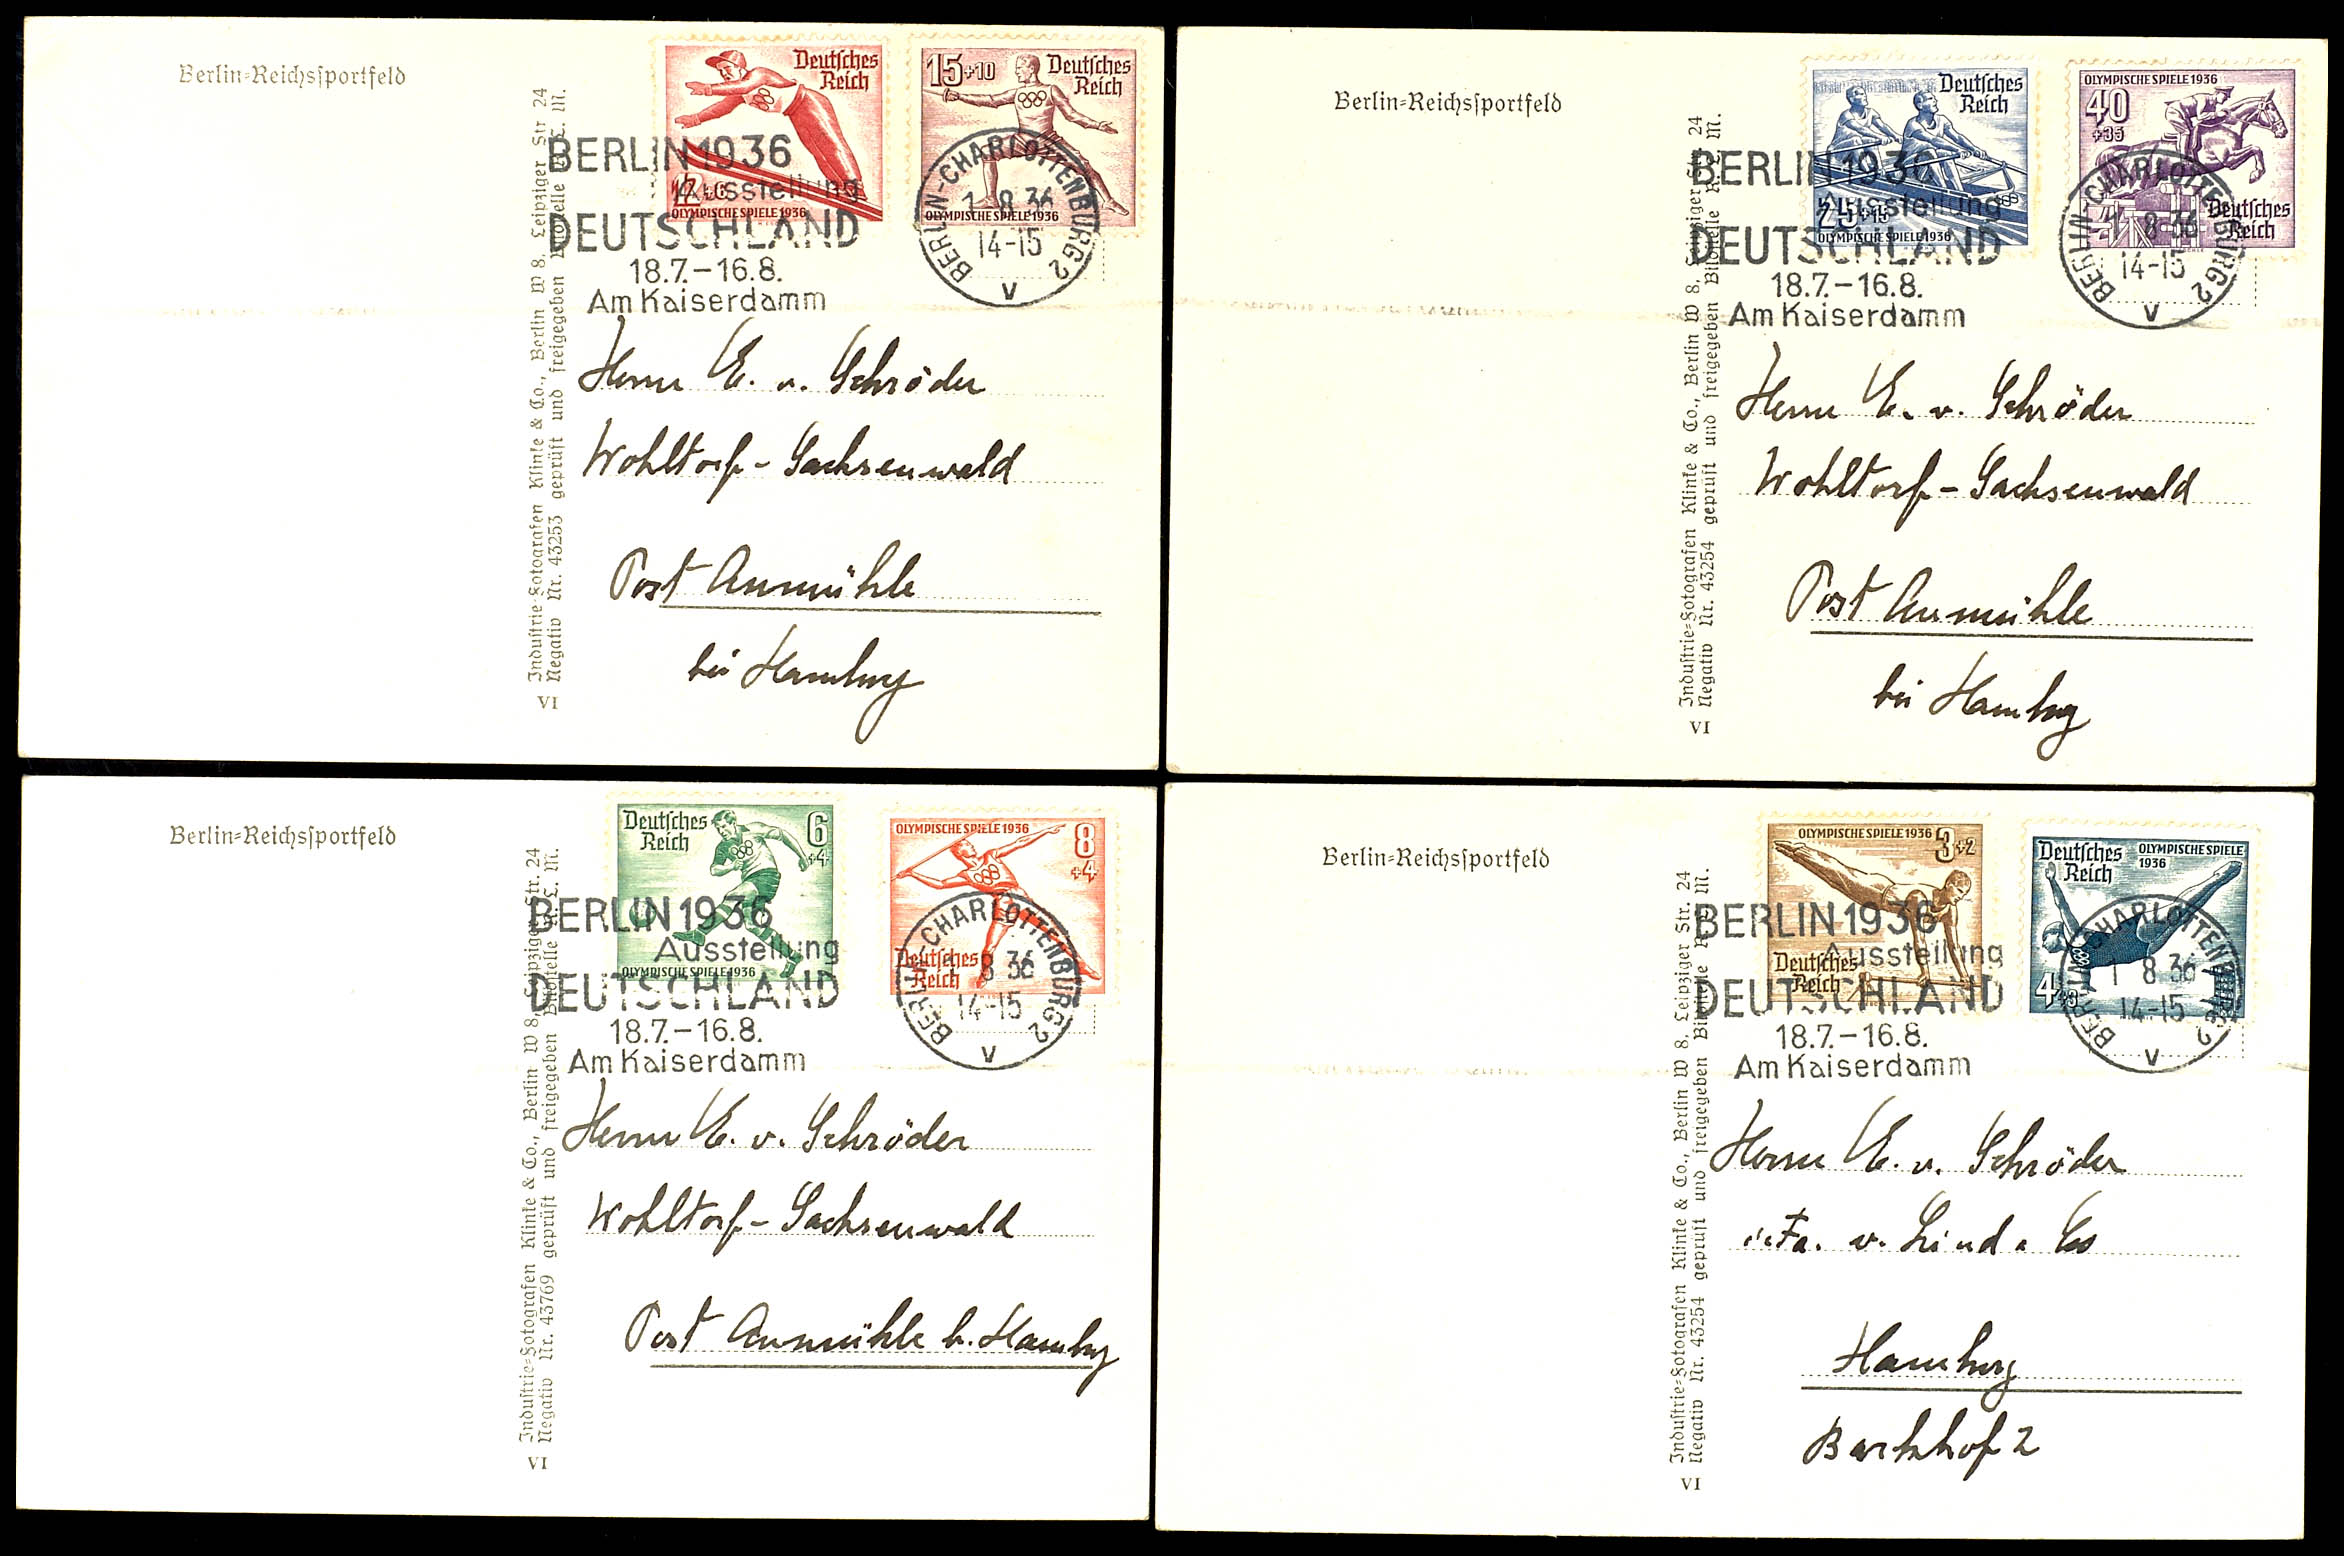 Berlin=Reichssportfeld
Deutsches
Reich
12+6
OLYMPISCHE SPIELE 1936
15+10
Deutsches
Reich
OLYMPISCHE SPIELE 1936
BERLIN 1936
Ausstellung
DEUTSCHLAND
18.7.–16.8.
Am Kaiserdamm
BERLIN-CHARLOTTENBURG 2
1 8 36
14-15
v
Industrie=Fotografen Klinke & Co., Berlin W 8, Leipziger Str 24
Negativ Nr. 43253 geprüft und freigegeben Bildstelle R. L. M.
VI
Herrn E. v. Schröder
Wohltorf - Sachsenwald
Post Aumühle
bei Hamburg
Berlin=Reichssportfeld
Deutsches
Reich
25+15
OLYMPISCHE SPIELE 1936
OLYMPISCHE SPIELE 1936
40
+35
Deutsches
Reich
BERLIN 1936
Ausstellung
DEUTSCHLAND
18.7.–16.8.
Am Kaiserdamm
BERLIN-CHARLOTTENBURG 2
1 8 36
14-15
v
Industrie=Fotografen Klinke & Co., Berlin W 8, Leipziger Str. 24
Negativ Nr. 43254 geprüft und freigegeben Bildstelle R. L. M.
VI
Herrn E. v. Schröder
Wohltorf - Sachsenwald
Post Aumühle
bei Hamburg
Berlin=Reichssportfeld
Deutsches
Reich
6
+4
OLYMPISCHE SPIELE 1936
OLYMPISCHE SPIELE 1936
8
+4
Deutsches
Reich
BERLIN 1936
Ausstellung
DEUTSCHLAND
18.7.–16.8.
Am Kaiserdamm
BERLIN-CHARLOTTENBURG 2
8 36
14-15
v
Industrie=Fotografen Klinke & Co., Berlin W 8, Leipziger Str. 24
Negativ Nr. 43769 geprüft und freigegeben Bildstelle R. L. M.
VI
Herrn E. v. Schröder
Wohltorf - Sachsenwald
Post Aumühle b. Hamburg
Berlin=Reichssportfeld
OLYMPISCHE SPIELE 1936
3+2
Deutsches
Reich
Deutsches
Reich
OLYMPISCHE SPIELE
1936
4+3
BERLIN 1936
Ausstellung
DEUTSCHLAND
18.7.–16.8.
Am Kaiserdamm
BERLIN-CHARLOTTENBURG 2
1 8 36
14-15
v
Industrie=Fotografen Klinke & Co., Berlin W 8, Leipziger Str. 24
Negativ Nr. 43254 geprüft und freigegeben Bildstelle R. L. M.
VI
Herrn E. v. Schröder
i. Fa. v. Lind & Co
Hamburg
Barkhof 2